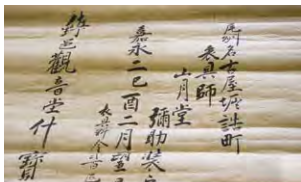 尾州名古屋堀詰町
表具師
山月堂
彌助裝
嘉永二己酉二月望
觀音堂什寶